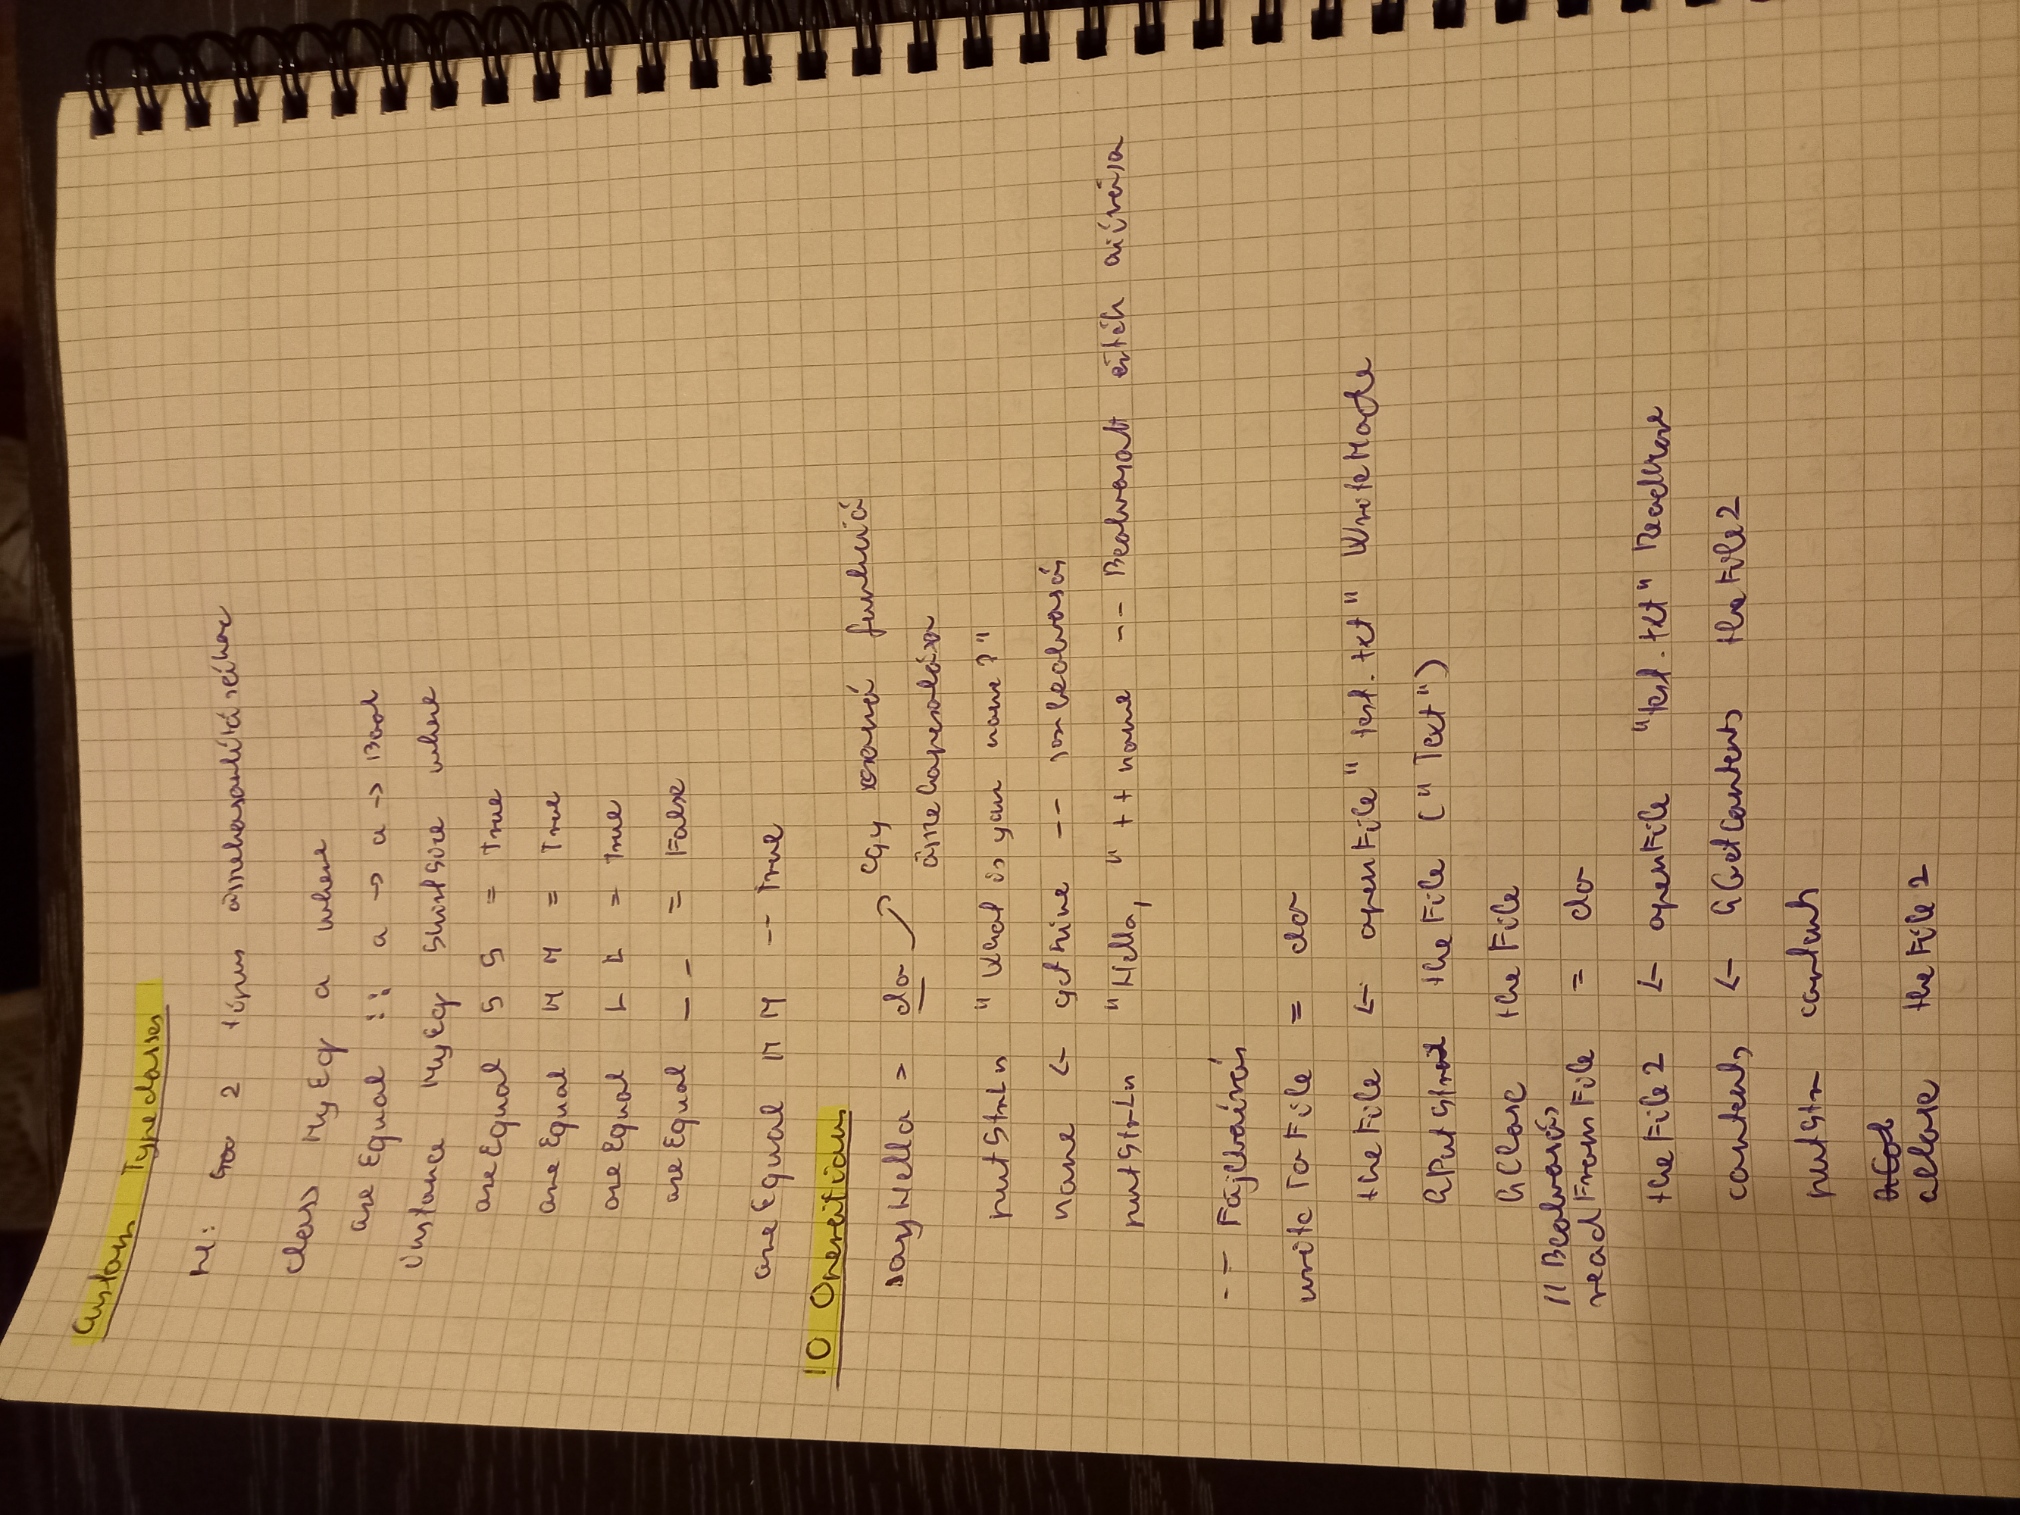 Custom Typeclasses
Pl: 2 típus összehasonlításához
class MyEq a where
areEqual :: a -> a -> Bool
instance MyEq ShirtSize where
areEqual S S = True
areEqual M M = True
areEqual L L = True
areEqual _ _ = False
areEqual M M -- True
IO Operations
sayHello = do → egy csomó funkció
összekapcsolása
putStrLn "What is your name?"
name <- getLine -- sorbeolvasás
putStrLn "Hello, " ++ name -- Beolvasott érték kiírása
-- Fájlbaírás
writeToFile = do
theFile <- openFile "test.txt" WriteMode
hPutStr theFile ("Text")
hClose theFile
// Beolvasás
readFromFile = do
theFile2 <- openFile "test.txt"
contents <- hGetContents theFile2
putStr contents
theFile2